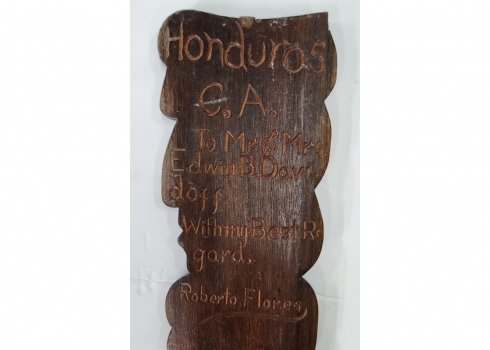 Honduras
C. A.
To Mr & Mrs
Edwin B. Davi
doff.
With my Best Re
gard.
Roberto Flores